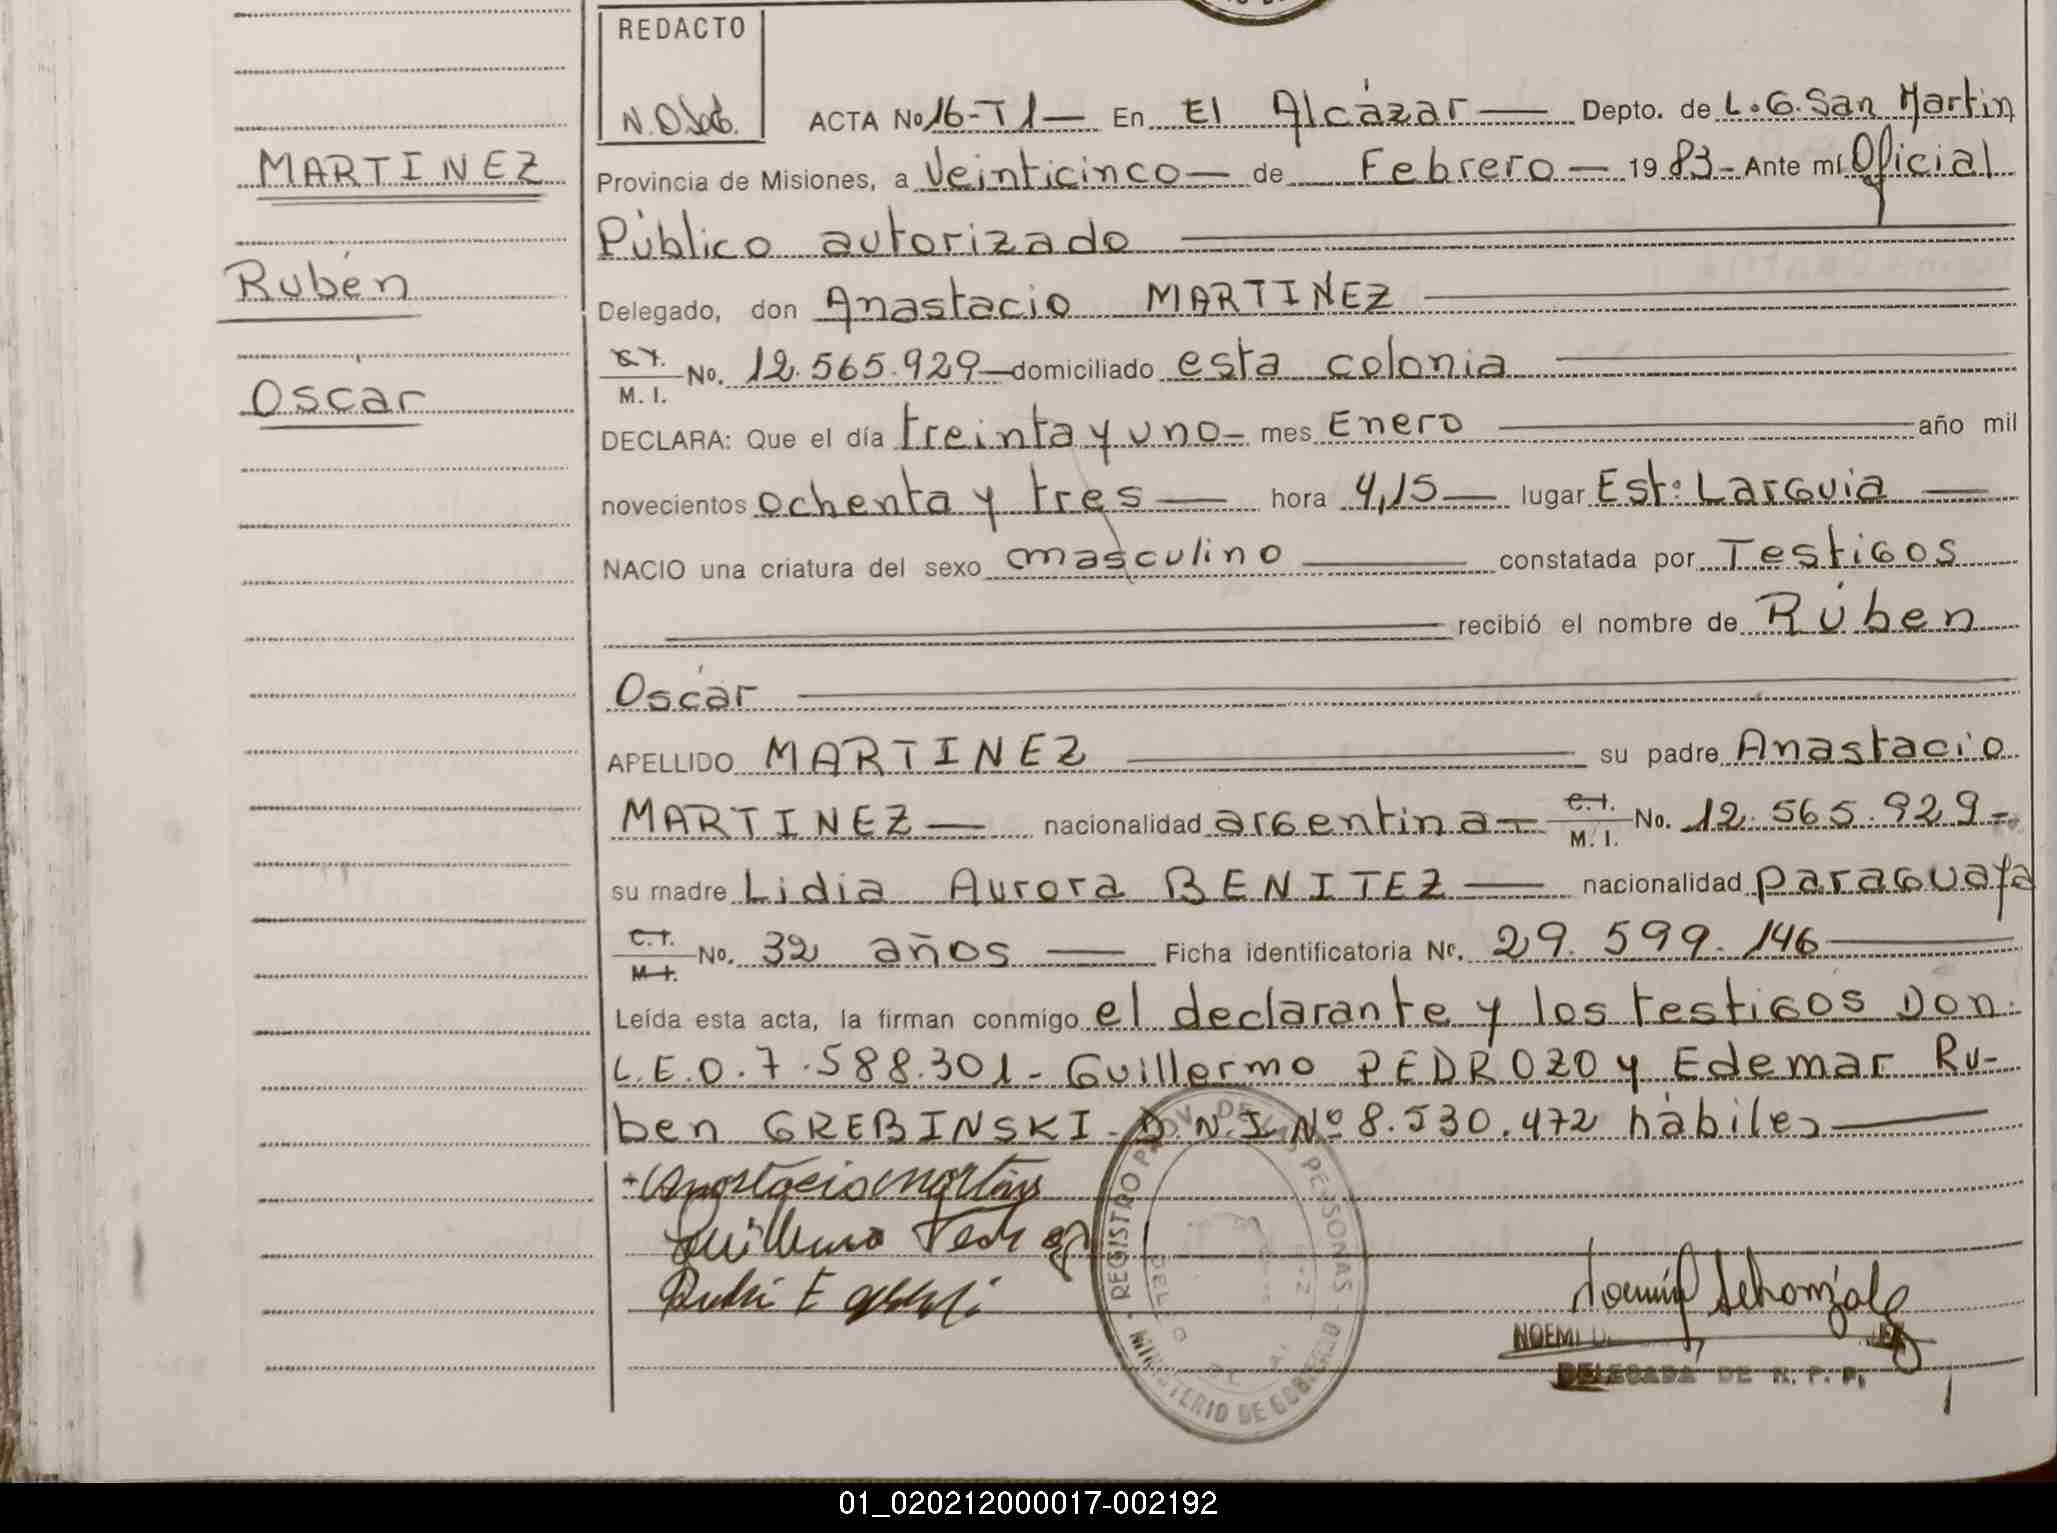 REDACTO
ACTA No 16-T1— En El Alcázar — Depto. de L.G. San Martin
MARTINEZ
Provincia de Misiones, a Veinticinco — de Febrero — 1983- Ante mí Oficial
Público autorizado
Rubén
Delegado, don Anastacio MARTINEZ
M. I. No. 12.565.929— domiciliado esta colonia
Oscar
DECLARA: Que el día treinta y uno- mes Enero año mil
novecientos ochenta y tres — hora 4,15 — lugar Est: Larguia —
NACIO una criatura del sexo masculino constatada por Testigos
recibió el nombre de Rúben
Oscar
APELLIDO MARTINEZ su padre Anastacio
MARTINEZ — nacionalidad argentina — C.I. M. I. No. 12.565.929-
su madre Lidia Aurora BENITEZ — nacionalidad paraguaya
C.I. M.I. No. 32 años — Ficha identificatoria No. 29.599.146
Leída esta acta, la firman conmigo el declarante y los testigos Don:
L.E.O.7.588.301- Guillermo PEDROZO y Edemar Ru-
ben GREBINSKI-D.N.I. Nº 8.530.472 hábiles —
REGISTRO PROV. DE LAS PERSONAS
MINISTERIO DE GOBIERNO
NOEMI
DELEGADA DE R. P. P.
01_020212000017-002192